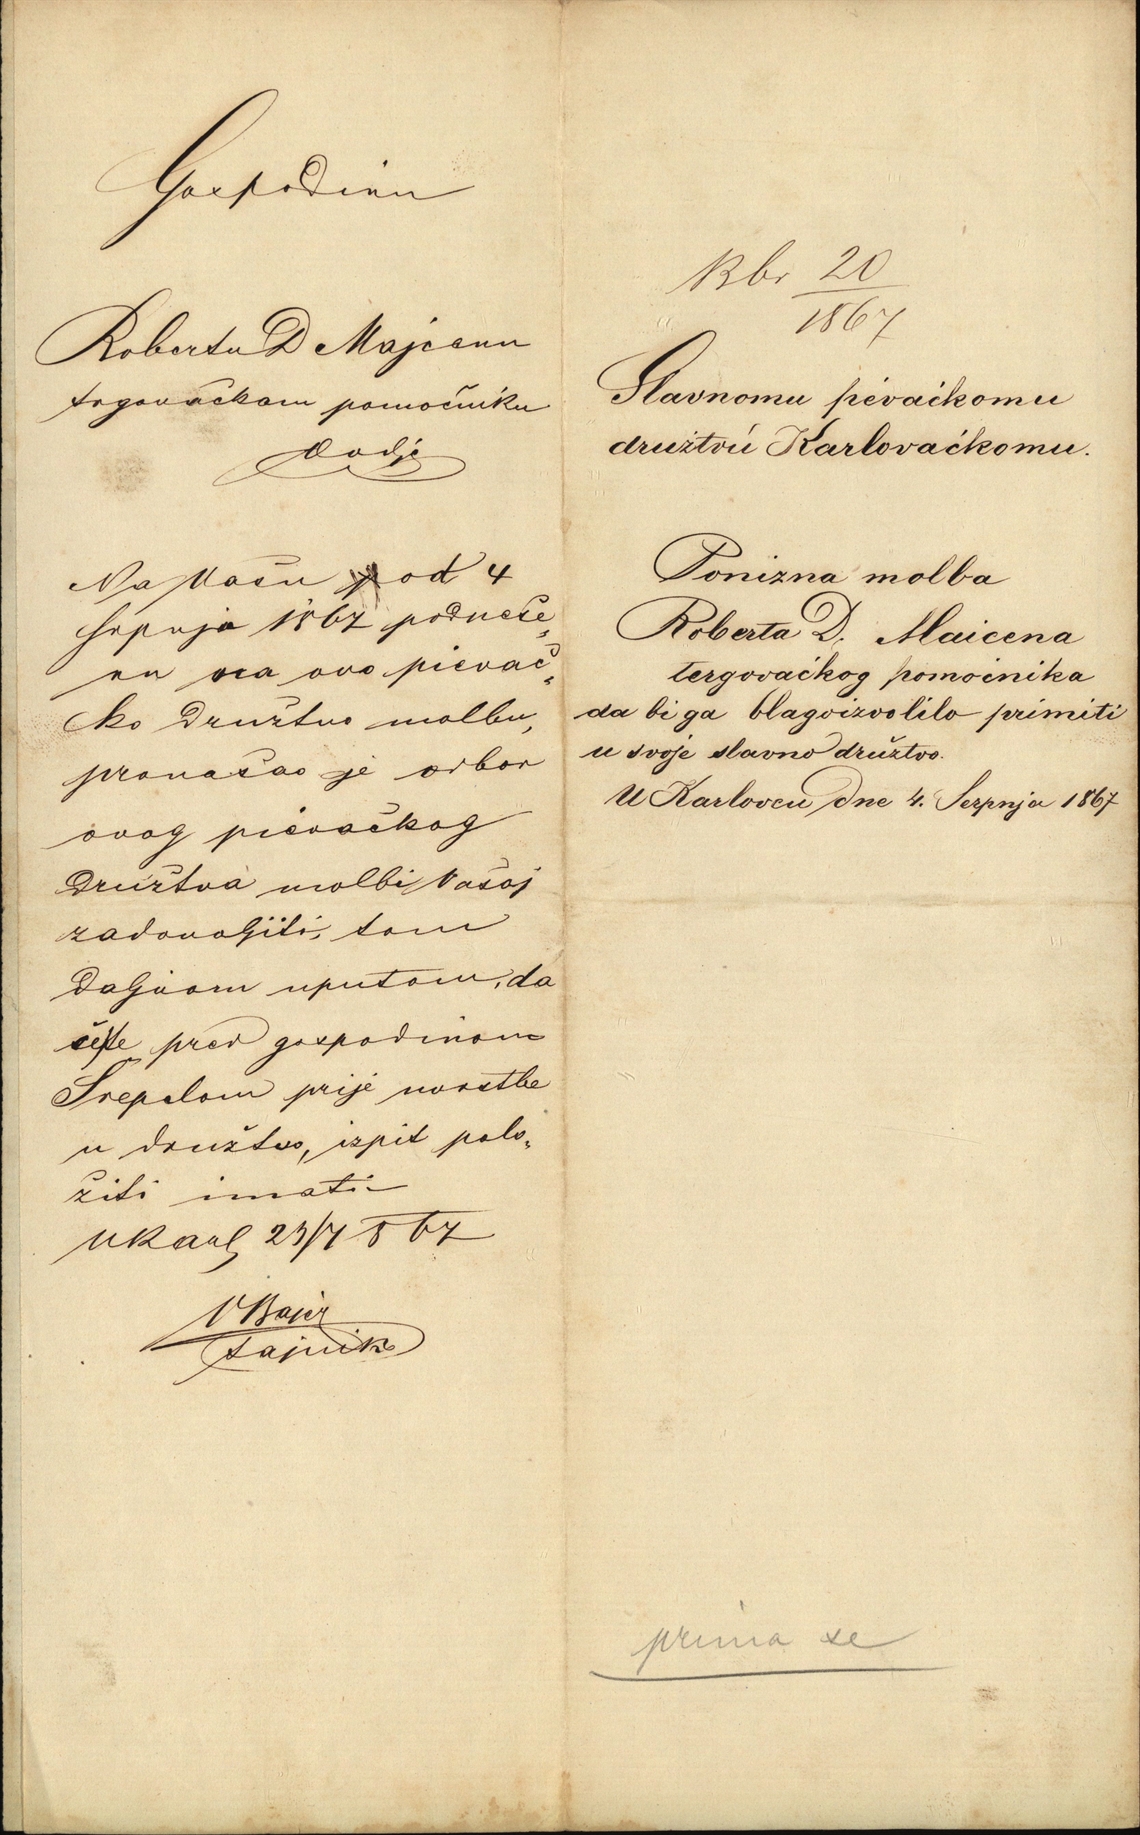 Gospodinu
Robertu D Majcenu
trgovačkom pomoćniku
ovdje
Na Vašu od 4
srpnja 1867 podneše„
nu na ovo pievač„
ko družtvo molbu,
pronašao je odbor
ovog pievačkog
družtva molbi Vašoj
zadovoljiti, tom
daljnom uputom, da
ćete pred gospodinom
Srepelom prije
u družtvo, izpit polo„
žiti imati
U Karl 23/7 867
V Bajer
tajnik
Kbr 20
1867
Slavnomu pèvačkomu
družtvú Karlovačkomu.
Ponizna molba
Roberta D. Maicena
tergovačkog pomoćnika
da bi ga blagoizvolilo primiti
u svoje slavno družtvo.
U Karlovcu dne 4. Serpnja 1867
prima se